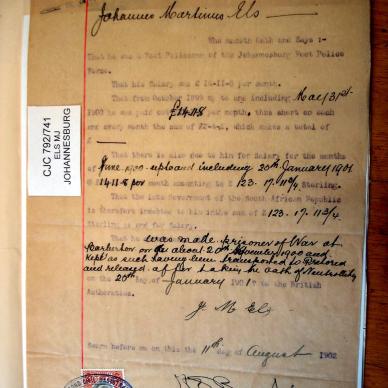 Johannes Martinus Els
Who maketh Oath and Says :-
That he was a Foot Policeman of the Johannesburg Foot Police
Force.
That his Salary was £ 14-11-8 per month.
That from October 1899 up to and including May 31st
1900 he was paid only £14.11.8 per month, thus short on each
and every month the sum of £2-1-8, which makes a total of
£
That there is also due to him for Salary for the months
of June 1900 up to and including 20th January 1901
£14-11-8 per month amounting to £ 123. 17. 11¾ Sterling.
That the late Government of the South African Republic
is therefore indebted to him in the sum of £ 123. 17. 11¾
Sterling as and for Salary.
That he was made prisoner of War at
Barberton on or about 20th 1900 and
kept as such having been transported to Pretoria
and released after taking the Oath of Neutrality
20th day of January 1901 to the British
Authorities.
J M Els
Sworn before me on this the 11th day of August 1902
CJC 792/741
ELS MJ
JOHANNESBURG